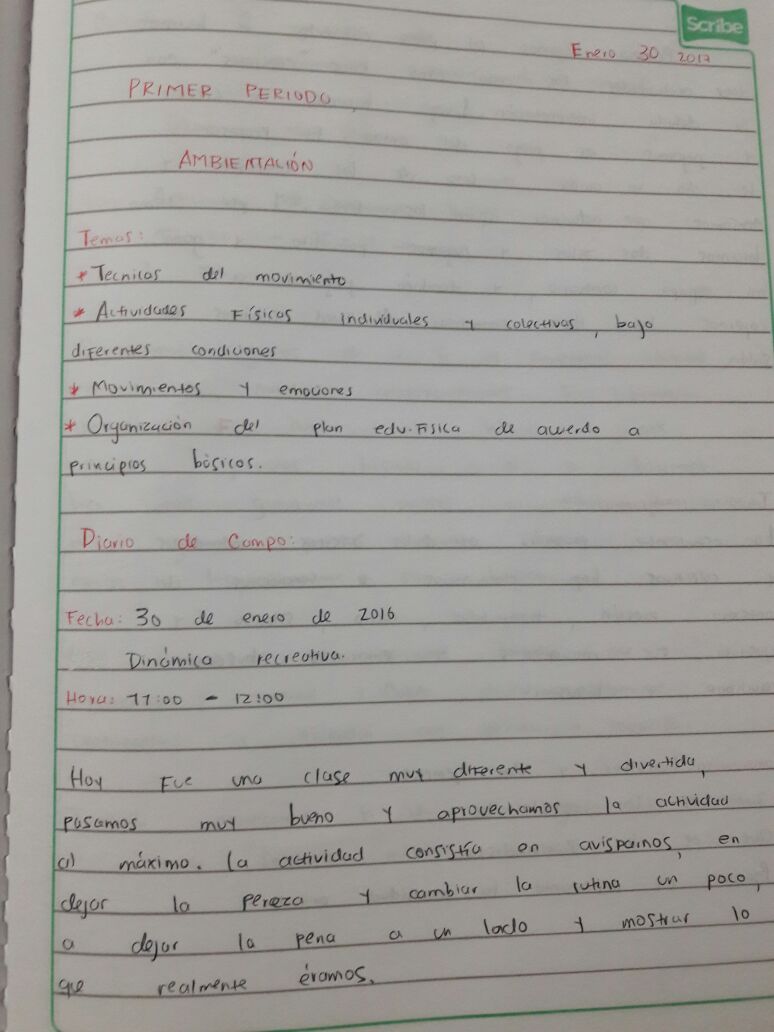 Scribe
Enero 30 2017
PRIMER PERIODO
AMBIENTACIÓN
Temas:
* Tecnicas del movimiento
* Actividades Físicas individuales y colectivas, bajo
diferentes condiciones
* Movimientos y emociones
* Organización del plan edu. Fisica de acuerdo a
principios básicos.
Diario de Campo:
Fecha: 30 de enero de 2016
Dinámica recreativa.
Hora: 11:00 - 12:00
Hoy Fue una clase muy diferente y divertida,
pasamos muy bueno y aprovechamos la actividad
al máximo. la actividad consistía en avisparnos, en
dejar la pereza y cambiar la rutina un poco,
a dejar la pena a un lado y mostrar lo
que realmente éramos.